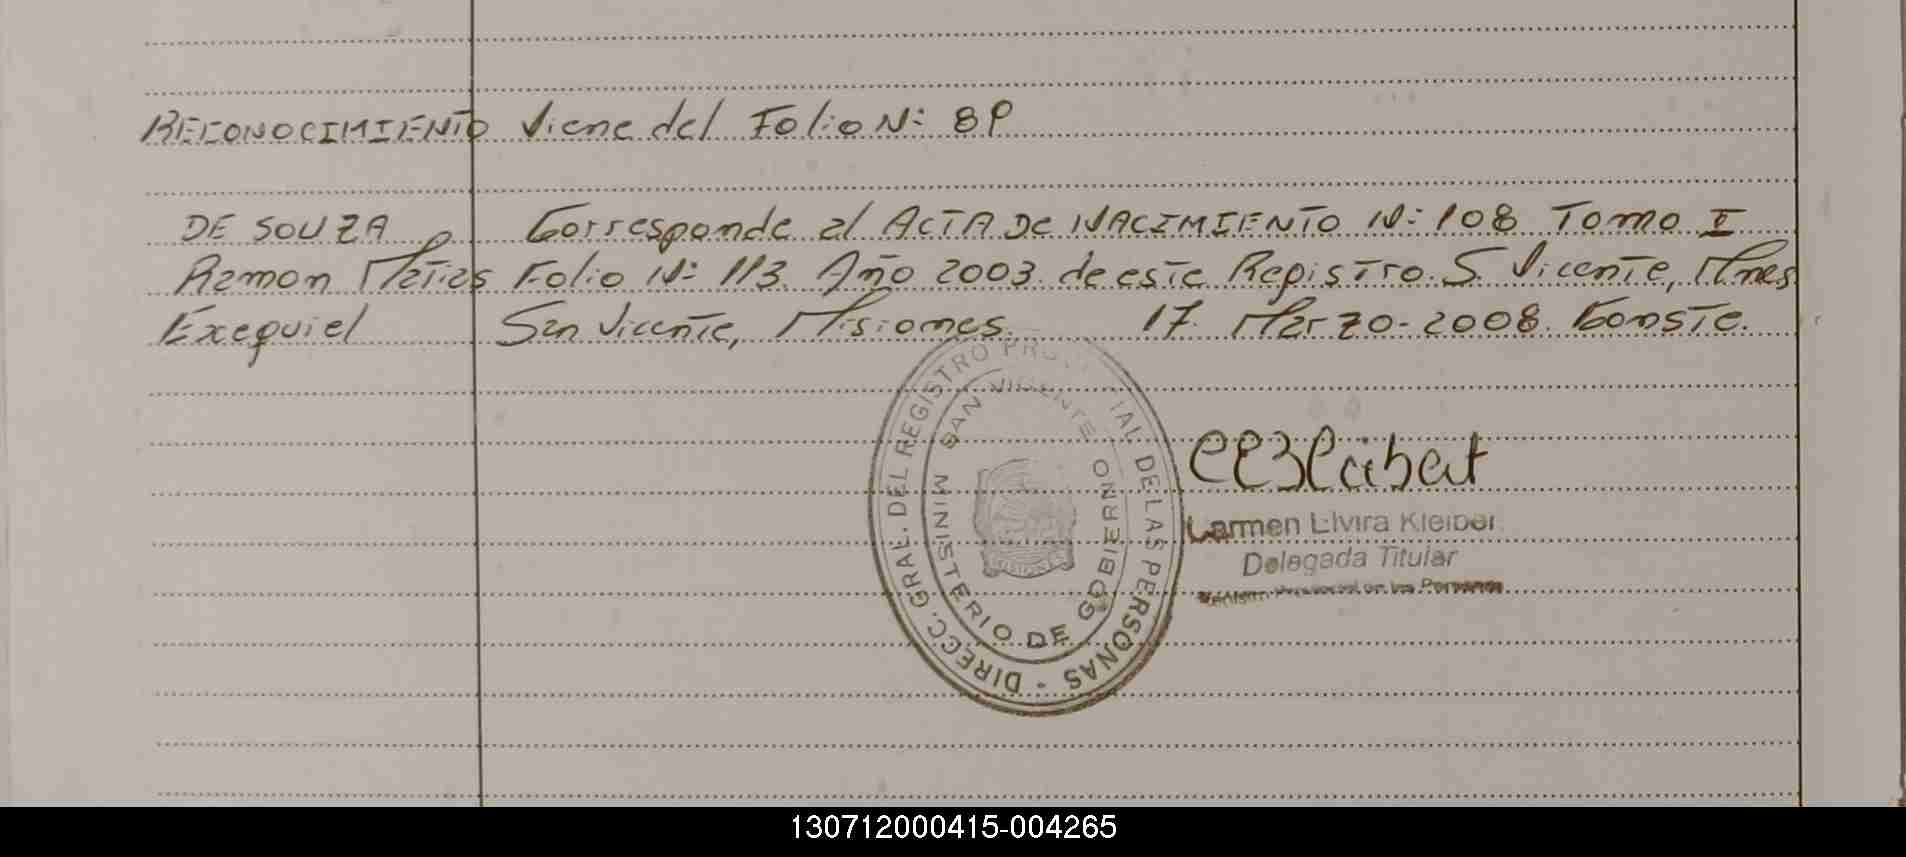 RECONOCIMIENTO Viene del Folio N: 89
DE SOUZA Corresponde al ACTA De NACIMIENTO N: 108 Tomo I
Ramon Matias Folio N: 113. Año 2003. de este Registro. S. Vicente, Mnes
Exequiel San Vicente, Misiones. 17. Marzo-2008. Conste.
DIRECC. GRAL. DEL REGISTRO PROVINCIAL DE LAS PERSONAS -
MINISTERIO DE GOBIERNO
SAN VICENTE
MISIONES
Carmen Elvira Kleiber
Delegada Titular
Provincial de las Personas
130712000415-004265